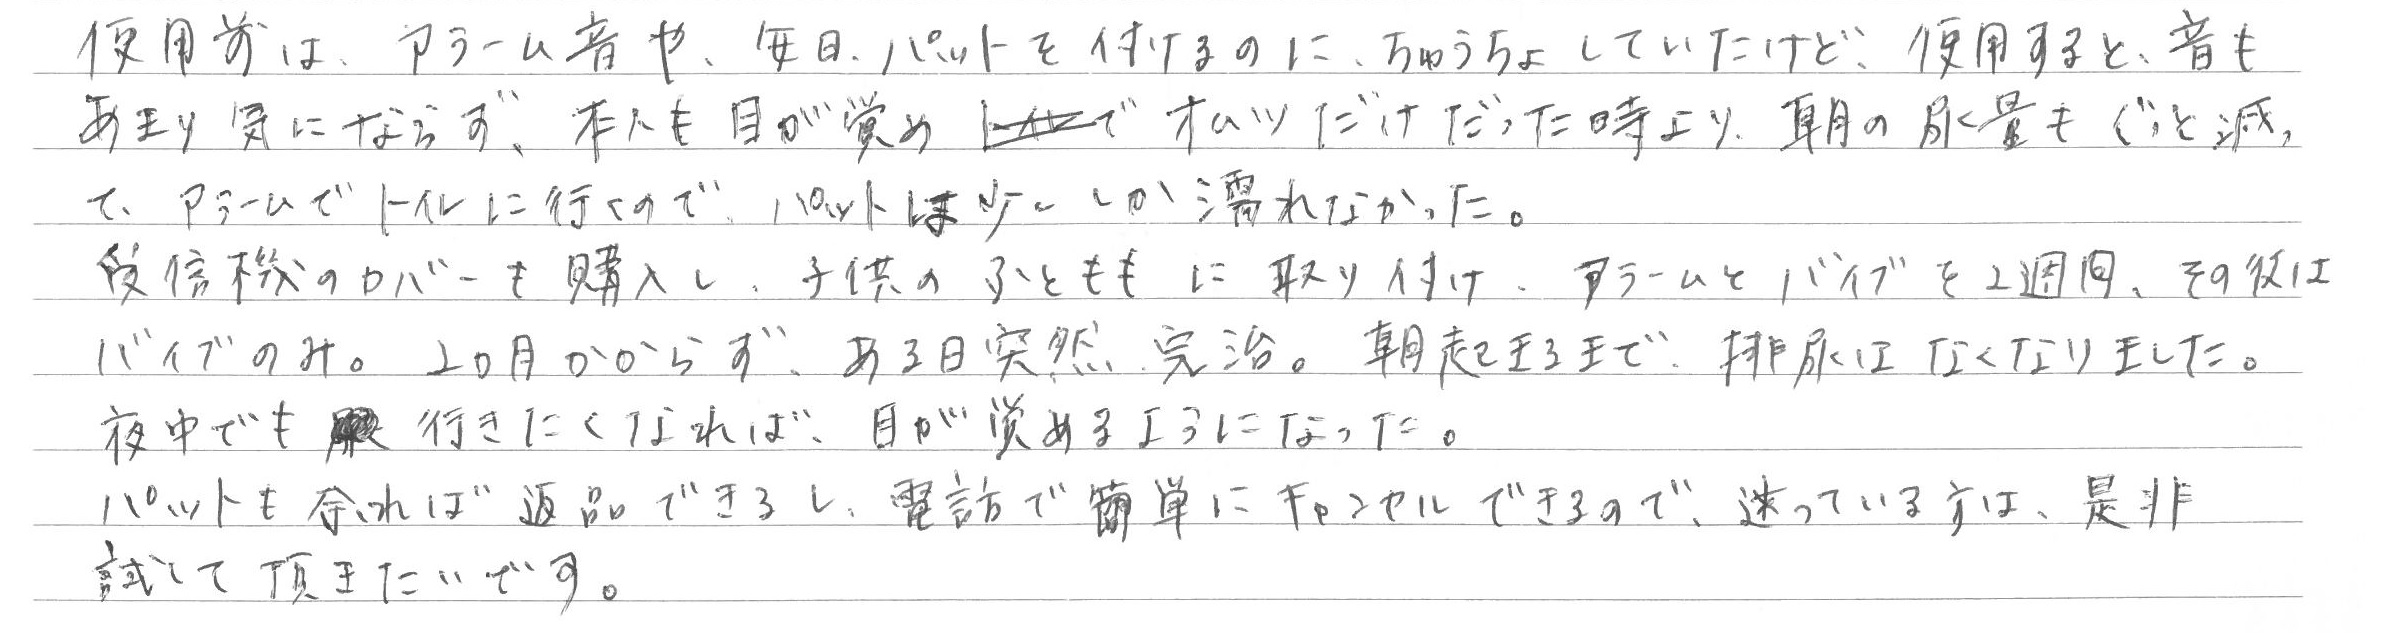 使用前は、アラーム音や、毎日、パットを付けるのに、ちゅうちょしていたけど、使用すると、音も
あまり気にならず、本人も目が覚め で オムツだけだった時より、朝の尿量もぐっと減っ
て、アラームでトイレに行くので、パットは少ししか濡れなかった。
受信機のカバーも購入し、子供のふとももに取り付け、アラームとバイブを2週間、その後は
バイブのみ。2カ月かからず、ある日突然、完治。朝起きるまで、排尿はなくなりました。
夜中でも 行きたくなれば、目が覚めるようになった。
パットも余れば返品できるし、電話で簡単にキャンセルできるので、迷っている方は、是非
試して頂きたいです。